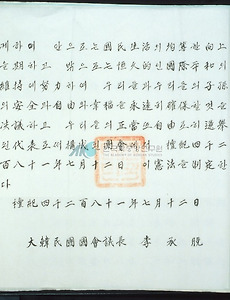 게하여 안으로는國民生活의均等한向上
을期하고 밖으로는恒久的인國際平和의
維持에努力하여 우리들과우리들의子孫
의安全과自由와幸福을永遠히確保할것을
決議하고 우리들의正當또自由로히選擧
된代表로서構成된國會에서 檀紀四千二
百八十一年七月十二日 이憲法을制定한
다
檀紀四千二百八十一年七月十二日
大韓民國國會議長 李承晩